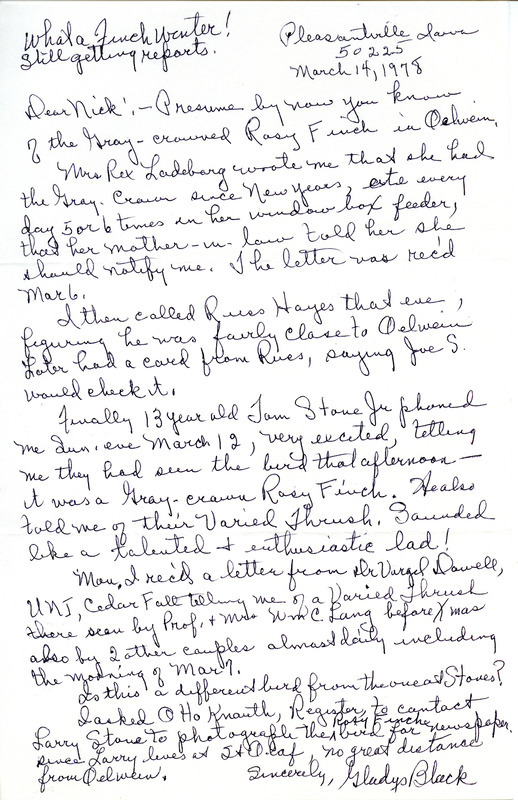 What a Finch Winter!
Still getting reports.
Pleasantville Iowa
50225
March 14, 1978
Dear Nick! - Presume by now you know
of the Gray-crowned Rosy Finch in Oelwein.
Mrs Rex Ladeburg wrote me that she had
the Gray-Crown since New Years, ate every
day 5 or 6 times in her window box feeder,
that her mother-in-law told her she
should notify me. The letter was rec'd
Mar 6.
I then called Russ Hayes that eve,
figuring he was fairly close to Oelwein
Later had a card from Russ, saying Joe S.
would check it.
Finally 13 year old Tom Stone Jr phoned
me Sun. eve March 12, very excited, telling
me they had seen the bird that afternoon—
it was a Gray-crown Rosy Finch. He also
told me of their Varied Thrush. Sounded
like a talented & enthusiastic lad!
Mon. I rec'd a letter from Dr Virgil Dowell,
UNI, Cedar Falls telling me of a Varied Thrush
there seen by Prof. & Mrs Wm C. Lang before Xmas
also by 2 other couples almost daily including
the morning of Mar 7.
Is this a different bird from the one at Stones?
I asked Otto Knauth, Register, to contact
Larry Stone to photograph the Rosy Finch bird for newspaper.
since Larry lives at St. Olaf no great distance
from Oelwein.
Sincerely, Gladys Black